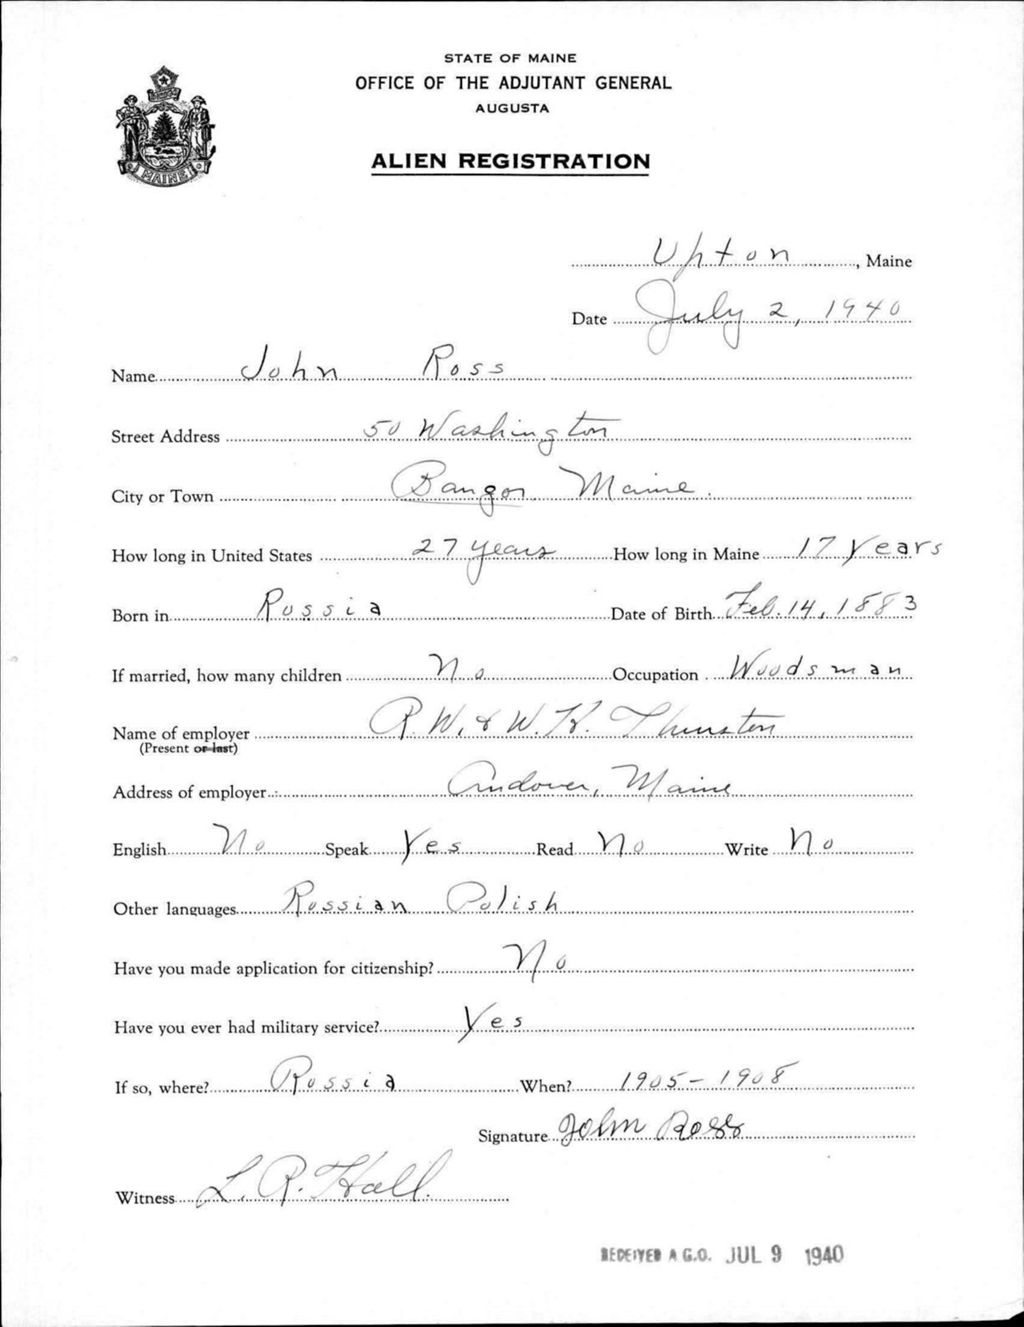 STATE OF MAINE
OFFICE OF THE ADJUTANT GENERAL
AUGUSTA
MAINE
ALIEN REGISTRATION
Upton, Maine
Date July 2, 1940
Name John Ross
Street Address 50 Washington
City or Town Bangor Maine.
How long in United States 27 years How long in Maine 17 Years
Born in Russia Date of Birth Feb. 14, 1883
If married, how many children No Occupation Woodsman
Name of employer R. W. & W. K. Thurston
(Present or last)
Address of employer Andover, Maine
English No Speak Yes Read No Write No
Other languages Russian Polish
Have you made application for citizenship? No
Have you ever had military service? Yes
If so, where? Russia When? 1905-1908
Signature John Ross
Witness L. R. Hall.
RECEIVED A.G.O. JUL 9 1940